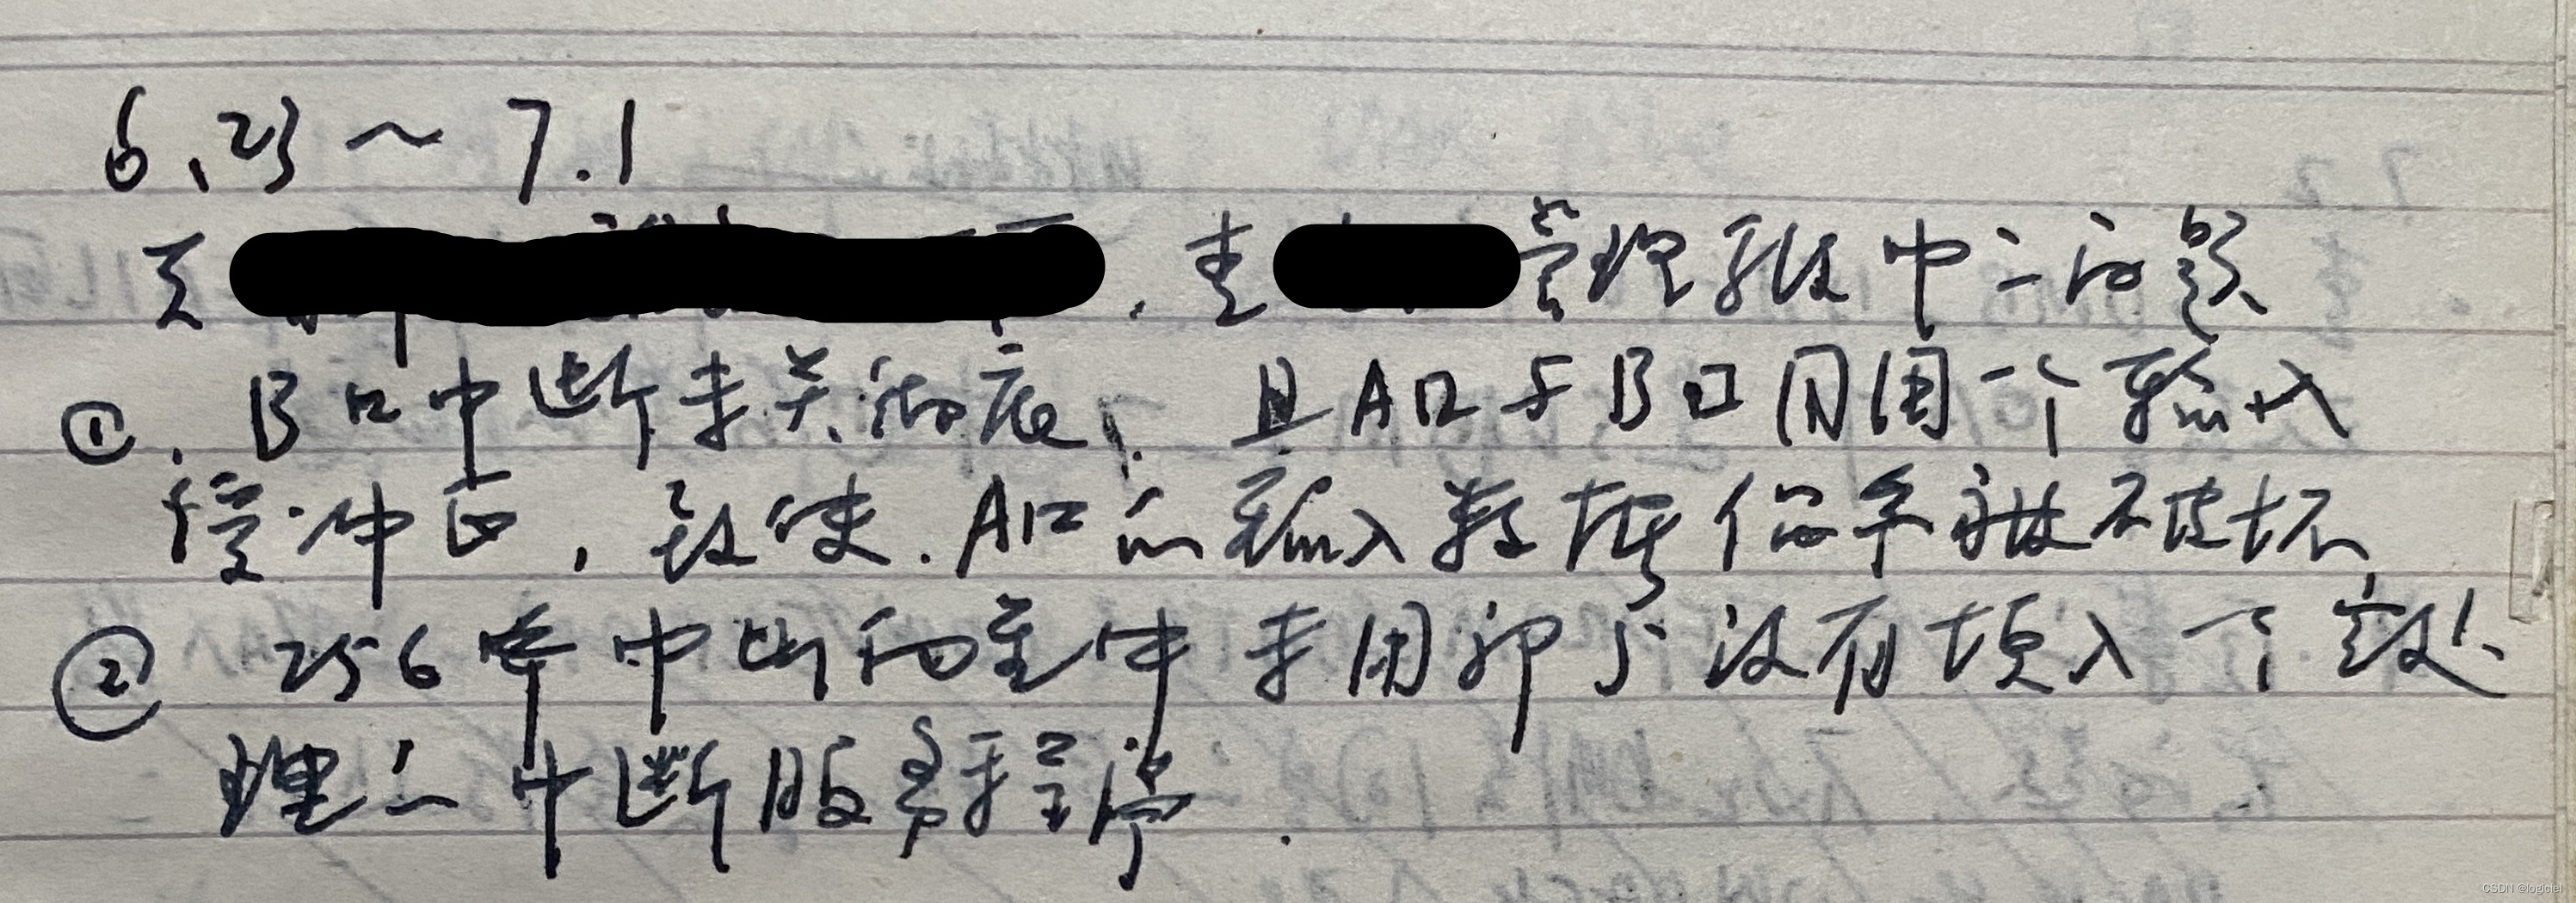 6.23～7.1
查管理软中之问题
①.B口中断未关彻底、且A口与B口同用一个输入
缓冲区,致使.A口的输入数据经常被破坏
② 256中断向量中未用部分没有填入一个空处
理之中断服务程序.
CSDN @logiciel